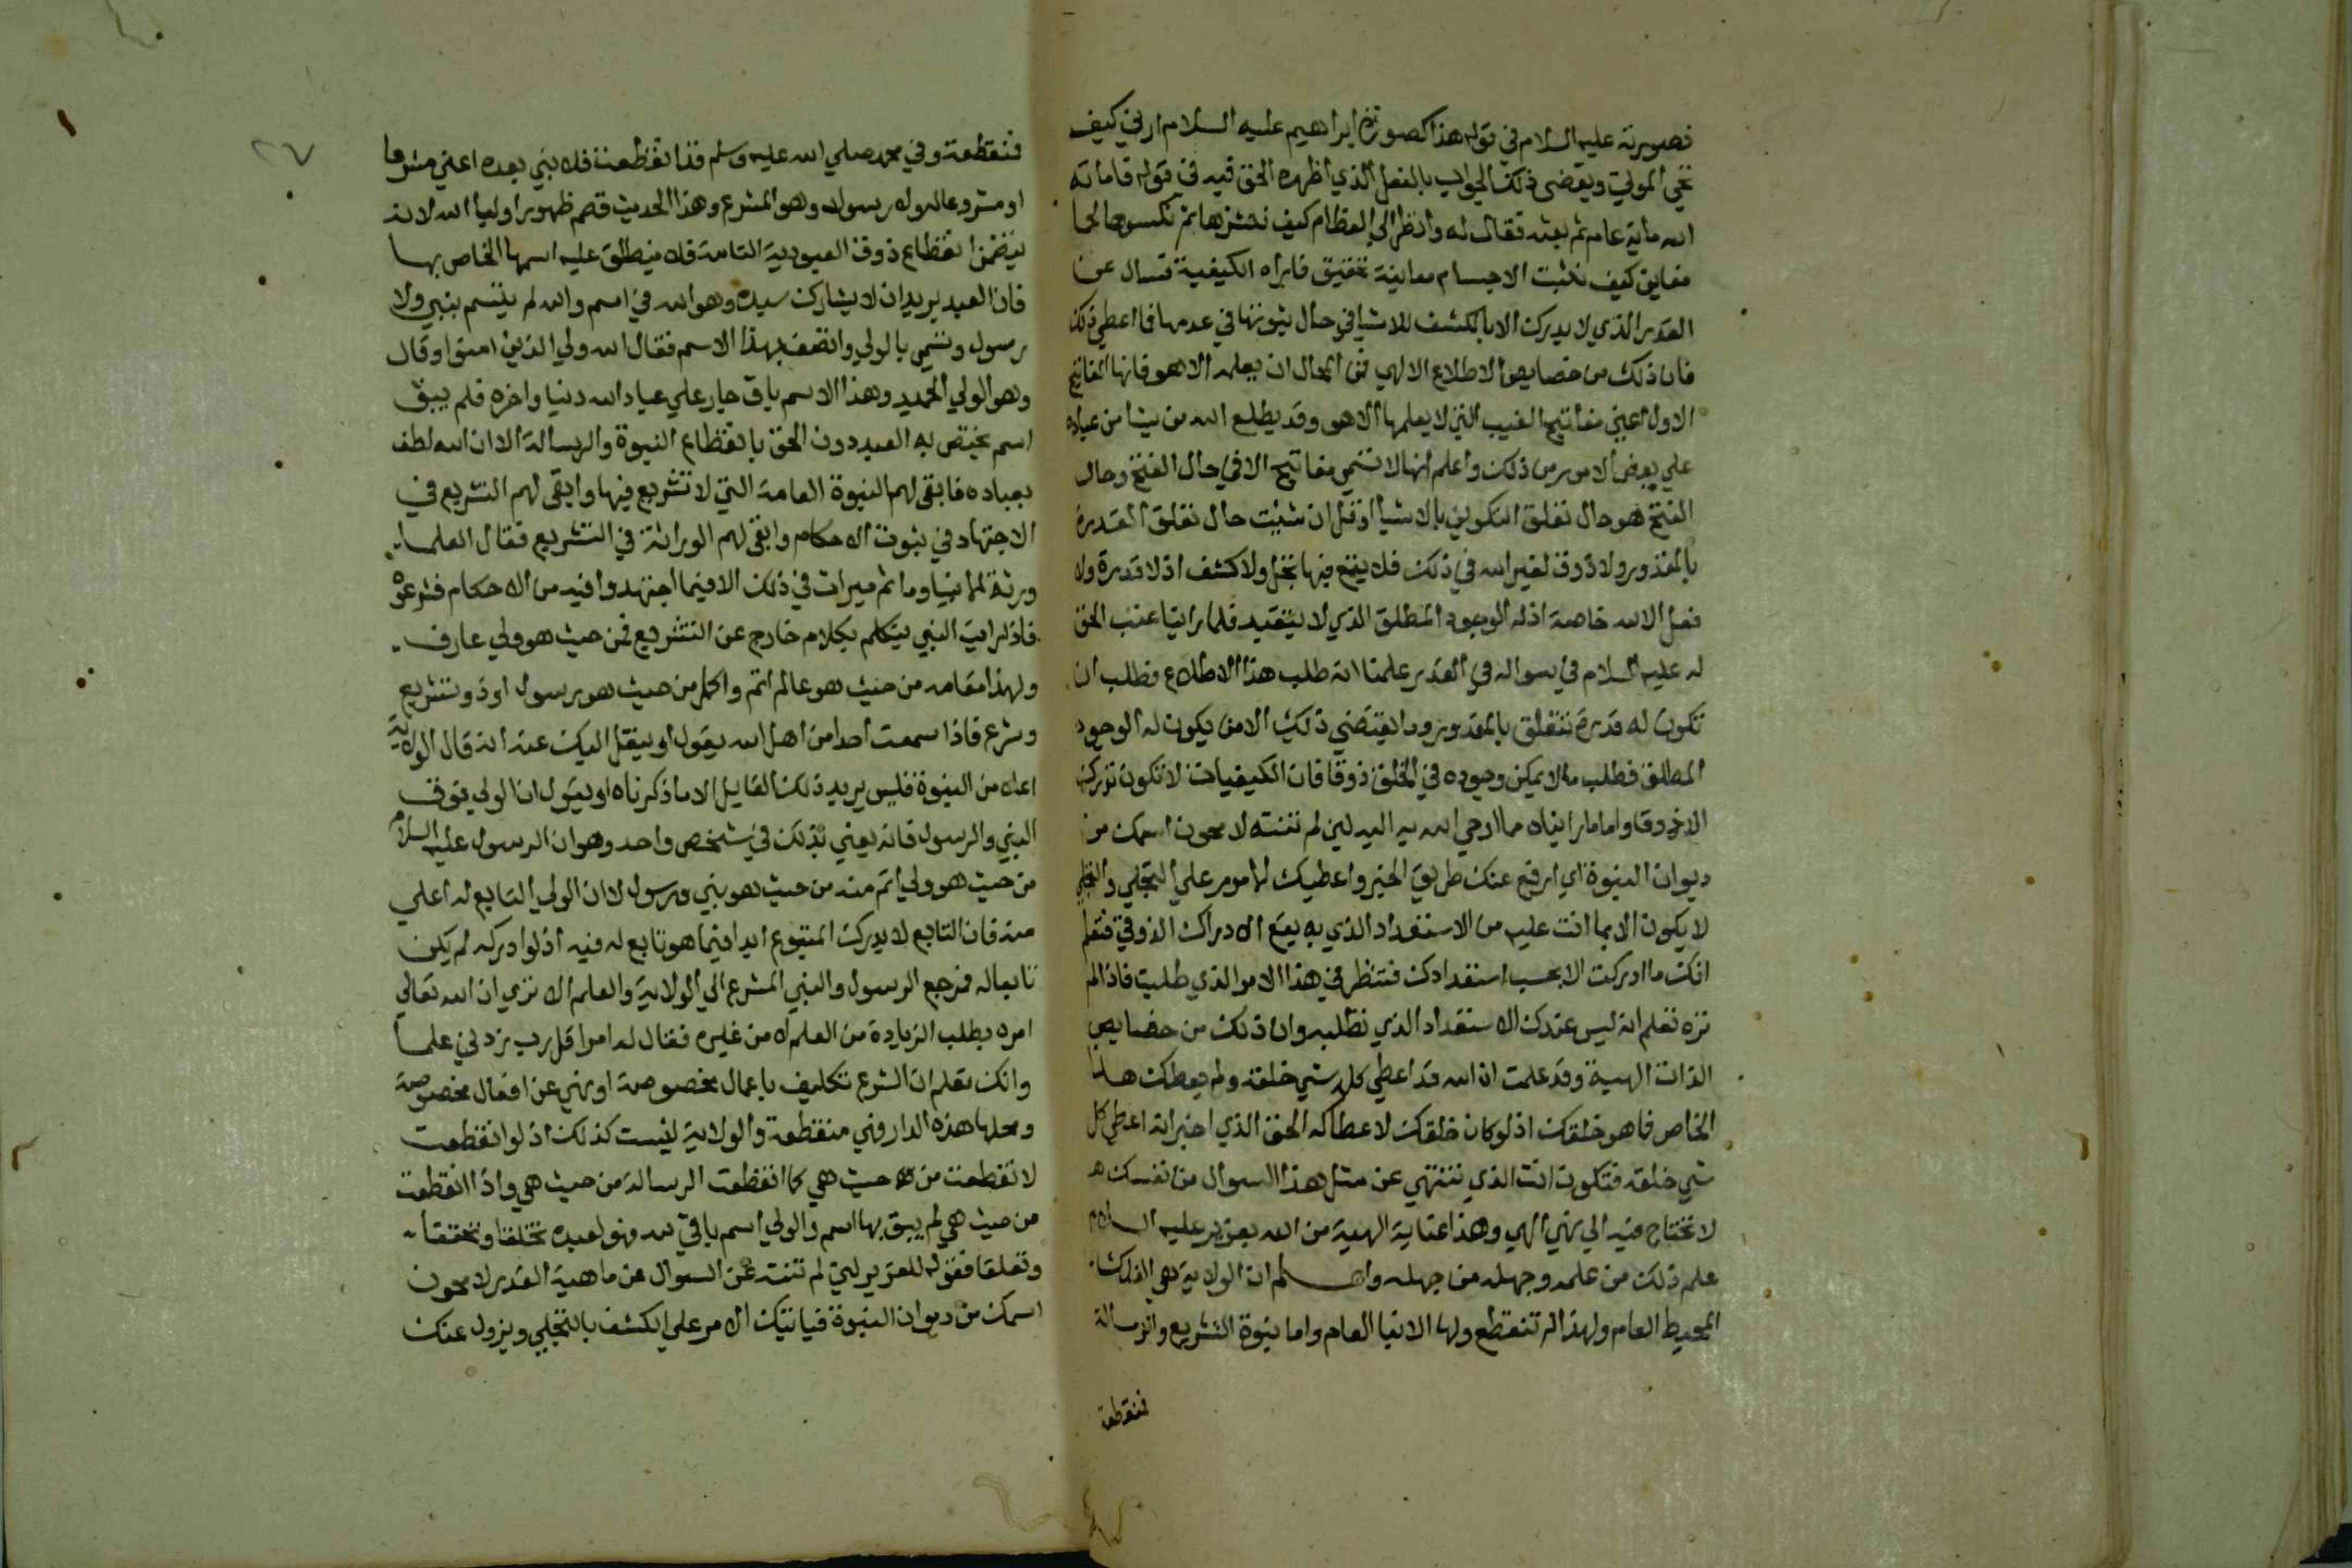 فصورته عليه السلام في قوله هذا كصورة ابراهيم عليه السلام ارني كيف
تحي الموتي ويقضى ذلك الجواب بالفعل الذي اظهره الحق فيه في قوله فاماته
الله ماية عام ثم بعثه فقال له وانظر الي العظام كيف ننشزها ثم نكسوها لحما
فعاين كيف تنبت الاجسام معاينة تحقيق فاراه الكيفية فسال عن
القدر الذي لا يدرك الا بالكشف للاشيا في حال ثبوتها في عدمها فما اعطي ذلك
فان ذلك من خصايص الاطلاع الالهي فمن المحال ان يعلمه الا هو فانها المفاتيح
الاول اعني مفاتيح الغيب التي لا يعلمها الا هو وقد يطلع الله من يشا من عباده
علي بعض الامور من ذلك واعلم انها لا تسمي مفاتيح الا في حال الفتح وحال
الفتح هو حال تعلق التكوين بالاشيا او قل ان شيت حال تعلق القدرة
بالمقدور ولا ذوق لغير الله في ذلك فلا يقع فيها تجل ولا كشف اذ لا قدرة ولا
فعل الا لله خاصة اذ له الوجود المطلق الذي لا يتقيد فلما راينا عتب الحق
له عليه السلام في سواله في القدر علمنا انه طلب هذا الاطلاع فطلب ان
تكون له قدرة تتعلق بالمقدور وما يقتضي ذلك الا من يكون له الوجود
المطلق فطلب ما لا يمكن وجوده في الخلق ذوقا فان الكيفيات لا تكون تدرك
الا ذوقا واما ما رايناه مما اوحي الله به اليه لين لم تنته لا محون اسمك من
ديوان النبوة اي ارفع عنك طريق الخبر واعطيك الامور علي التجلي والتجلي
لا يكون الا بما انت عليه من الاستعداد الذي به يقع الادراك الذوقي فتعلم
انك ما ادركت الا بحسب استعدادك فتنظر في هذا الامر الذي طلبت فاذا لم
تره تعلم انه ليس عندك الاستعداد الذي تطلبه وان ذلك من خصايص
الذات الهية وقد علمت ان الله قد اعطي كل شي خلقه ولم يعطك هذا
الخاص فما هو خلقك اذ لو كان خلقك لاعطاكه الحق الذي اخبر انه اعطي كل
شي خلقه فتكون انت الذي تنتهي عن مثل هذا السوال من نفسك
لا تحتاج فيه الي نهي الهي وهذا عناية الهية من الله بعزير عليه السلام
علم ذلك من علمه وجهله من جهله واعلم ان الولاية هي الفلك
المحيط العام ولهذا لم تنقطع ولها الانبا العام واما نبوة التشريع والرسالة
فنقطعة
٢٧
فنقطعة وفي محمد صلي الله عليه وسلم قد انقطعت فلا نبي بعده اعني مشرعا
او مشروعا له ولا رسول وهو المشرع وهذا الحديث قصم ظهور اوليا الله لانه
يتضمن انقطاع ذوق العبودية التامة فلا ينطلق عليه اسمها الخاص بها
فان العبد يريد ان لا يشارك سيده وهو الله في اسم والله لم يتسم بنبي ولا
رسول وتسمي بالولي واتصف بهذا الاسم فقال الله ولي الذين امنوا وقال
وهو الولي الحميد وهذا الاسم باق جار علي عباد الله دنيا واخره فلم يبق
اسم يختص به العبد دون الحق بانقطاع النبوة والرسالة الا ان الله لطف
بعباده فابقى لهم النبوة العامة التي لا تشريع فيها وابقى لهم التشريع في
الاجتهاد في ثبوت الاحكام وابقى لهم الوراثة في التشريع فقال العلما
ورثة الانبيا وما ثم ميراث في ذلك الا فيما اجتهدوا فيه من الاحكام فشرعوه
فاذا رايت النبي يتكلم بكلام خارج عن التشريع فمن حيث هو ولي عارف
ولهذا مقامه من حيث هو عالم اتم واكمل من حيث هو رسول او ذو تشريع
وشرع فاذا سمعت احدا من اهل الله يقول او ينقل اليك عنه انه قال الولاية
اعلا من النبوة فليس يريد ذلك القايل الا ما ذكرناه او يقول ان الولي فوق
النبي والرسول فانه يعني بذلك في شخص واحد وهو ان الرسول عليه السلام
من حيث هو ولي اتم منه من حيث هو نبي ورسول لا ان الولي التابع له اعلي
منه فان التابع لا يدرك المتبوع ابدا فيما هو تابع له فيه اذ لو ادركه لم يكن
تابعا له فمرجع الرسول والنبي المشرع الي الولاية والعلم الا تري ان الله تعالي
امره بطلب الزيادة من العلم لا من غيره فقال له امرا قل رب زدني علما
وانك تعلم ان الشرع تكليف باعمال مخصوصة او نهي عن افعال مخصوصة
ومحلها هذه الدار وهي منقطعة والولاية ليست كذلك اذ لو انقطعت
لا نقطعت من حيث هي كما انقطعت الرسالة من حيث هي واذا انقطعت
من حيث هي لم يبق بها اسم والولي اسم باق لله فهو لعبيده تخلقا وتحققا
وتعلقا فقوله للعزير لين لم تنته عن السوال عن ماهية القدر لا محون
اسمك من ديوان النبوة فياتيك الامر علي الكشف بالتجلي ويزول عنك